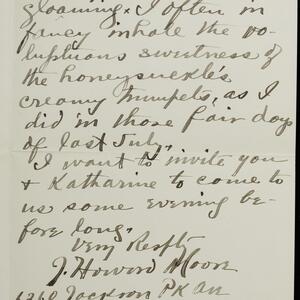 gloaming. I often in
fancy inhale the vo-
luptuous sweetness of
the honeysuckle's
creamy trumpets, as I
did in those fair days
of last July.
I want to invite you
& Katharine to come to
us some evening be-
fore long.
Very Respty
J. Howard Moore
Jackson Pk Av